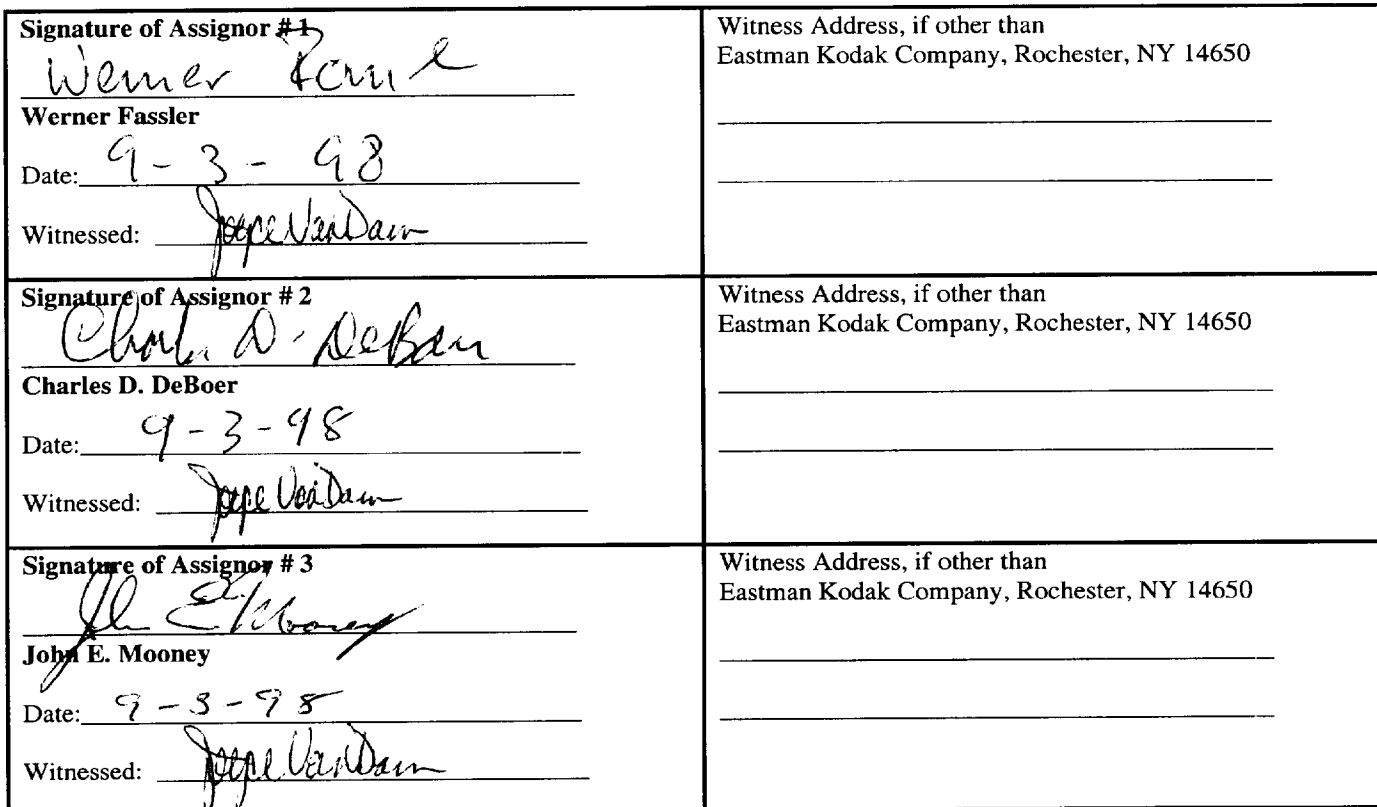 Signature of Assignor # 1
Werner
Werner Fassler
Date: 9 - 3 - 98
Witnessed: Joyce VanDam
Witness Address, if other than
Eastman Kodak Company, Rochester, NY 14650
Signature of Assignor # 2
Charles D. DeBoer
Charles D. DeBoer
Date: 9 - 3 - 98
Witnessed: Joyce VanDam
Witness Address, if other than
Eastman Kodak Company, Rochester, NY 14650
Signature of Assignor # 3
John E. Mooney
John E. Mooney
Date: 9 - 3 - 98
Witnessed: Joyce VanDam
Witness Address, if other than
Eastman Kodak Company, Rochester, NY 14650